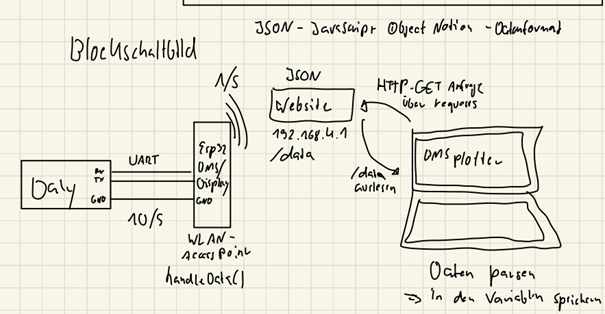 JSON - JavaScript Object Notion - Datenformat
Blockschaltbild
1/S
JSON
Website
192.168.4.1
/data
HTTP-GET Anfrage
über requests
/data
auslesen
DMS plotter
Daly
RX
TX
GND
UART
10/S
Esp32
DMS/
Display
GND
WLAN-
AccessPoint
handleData()
Daten parsen
⇒ In den Variablen speichern